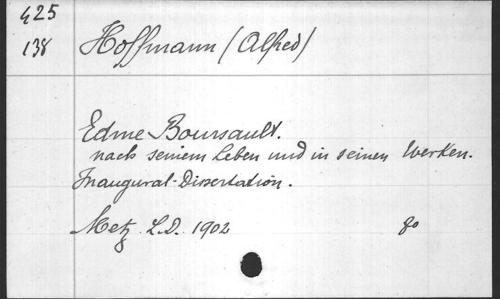 425
138 Hoffmann (Alfred)
Edme Boursault.
nach seinem Leben und in seinen Werken.
Inaugural-Dissertation.
Metz. L.D. 1902 8o